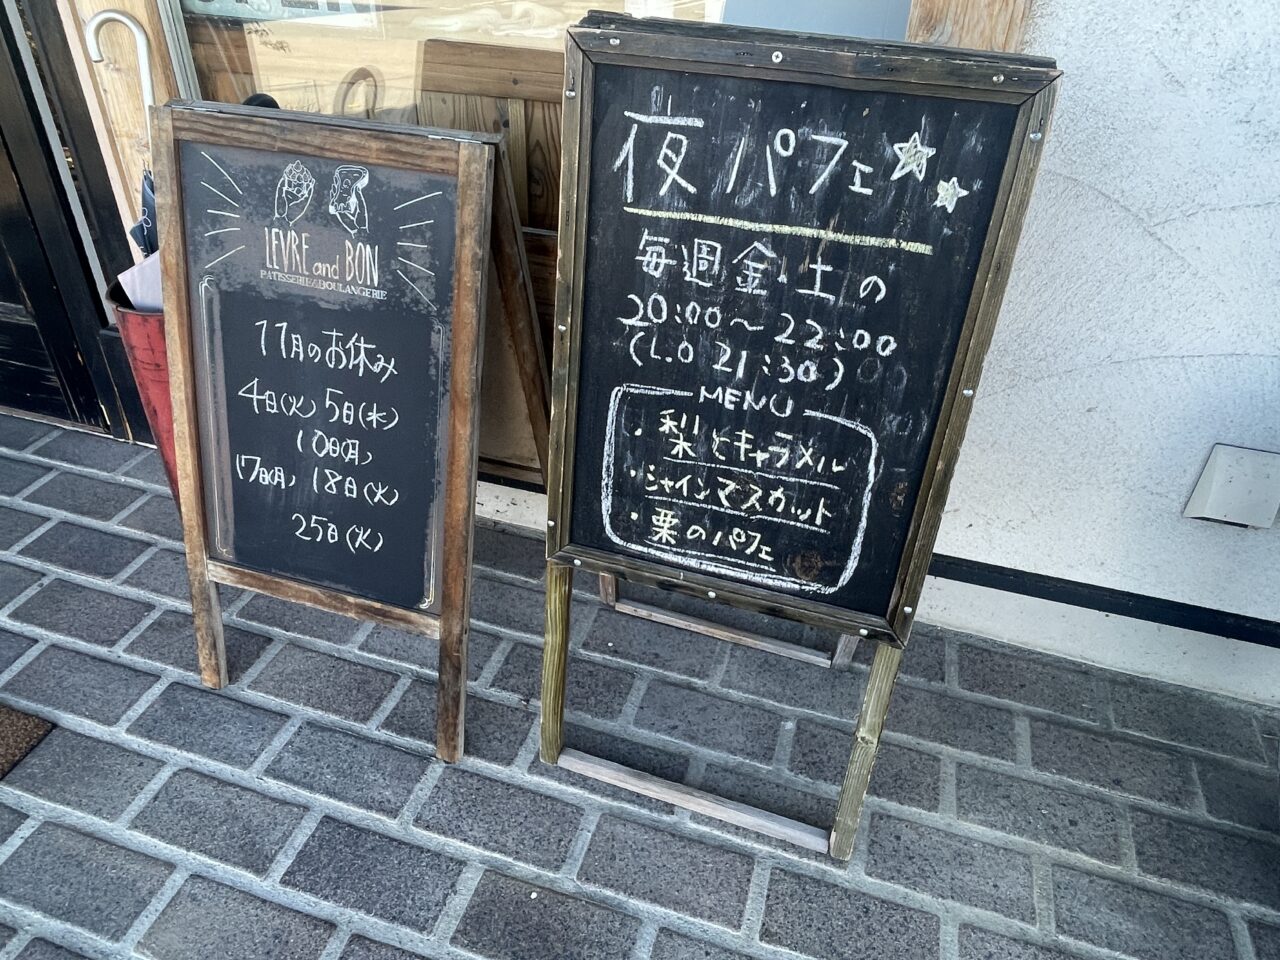 LEVRE and BON
PATISSERIE&BOULANGERIE
11月のお休み
4日(火) 5日(水)
10日(月)
17日(月) 18日(火)
25日(火)
夜パフェ
毎週金・土の
20:00〜22:00
(L.O 21:30)
MENU
・梨とキャラメル
・シャインマスカット
・栗のパフェ